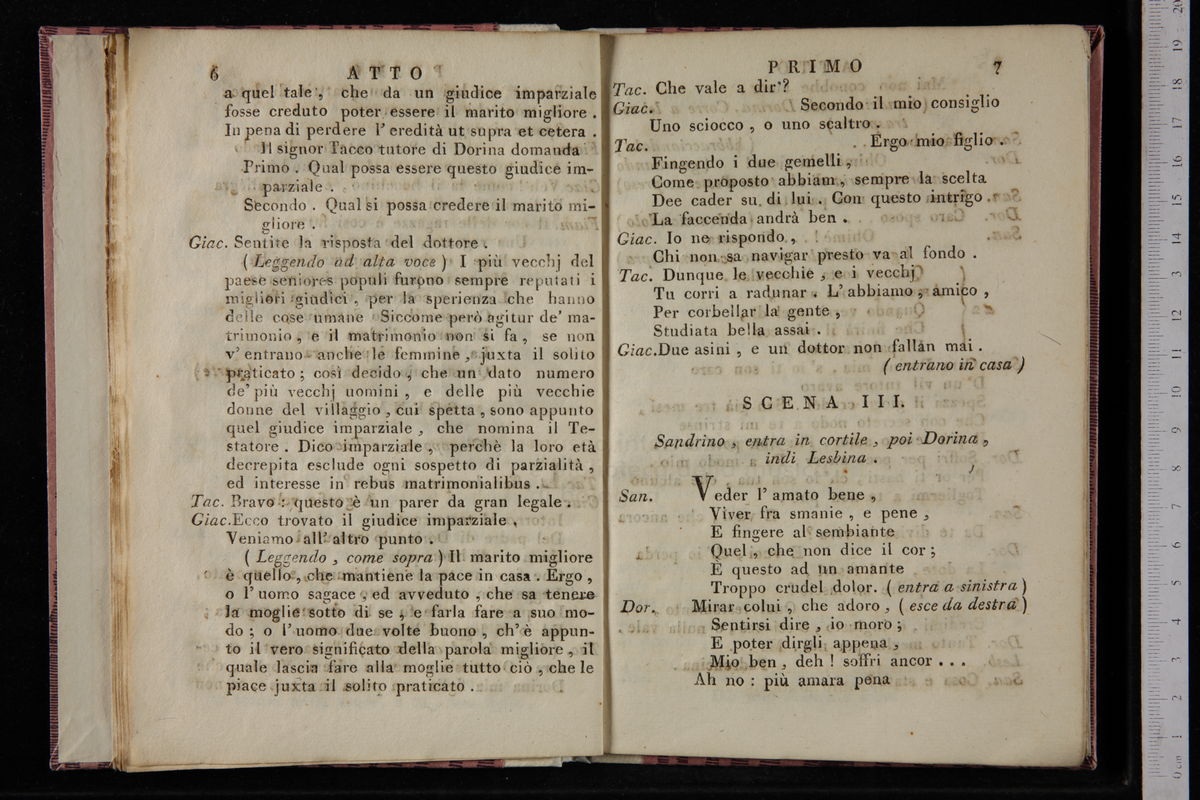 6 ATTO
a quel tale , che da un giudice imparziale
fosse creduto poter essere il marito migliore .
In pena di perdere l' credità ut supra et cetera .
Il signor Tacco tutore di Dorina domanda
Primo . Qual possa essere questo giudice im-
parziale .
Secondo . Qual si possa credere il marito mi-
gliore .
Giac. Sentite la risposta del dottore .
( Leggendo ad alta voce ) I più vecchj del
paese seniores populi furono sempre reputati i
migliori giudici , per la sperienza che hanno
delle cose umane Siccome però agitur de' ma-
trimonio , e il matrimonio non si fa , se non
v' entrano anche le femmine , juxta il solito
praticato ; così decido , che un dato numero
de' più vecchj uomini , e delle più vecchie
donne del villaggio , cui spetta , sono appunto
quel giudice imparziale , che nomina il Te-
statore . Dico imparziale , perchè la loro età
decrepita esclude ogni sospetto di parzialità ,
ed interesse in rebus matrimonialibus .
Tac. Bravo : questo è un parer da gran legale .
Giac. Ecco trovato il giudice imparziale .
Veniamo all' altro punto .
( Leggendo , come sopra ) Il marito migliore
è quello , che mantiene la pace in casa . Ergo ,
o l' uomo sagace , ed avveduto , che sa tenere
la moglie sotto di se , e farla fare a suo mo-
do ; o l' uomo due volte buono , ch' è appun-
to il vero significato della parola migliore , il
quale lascia fare alla moglie tutto ciò , che le
piace juxta il solito praticato .
PRIMO 7
Tac. Che vale a dir' ?
Giac. Secondo il mio consiglio
Uno sciocco , o uno scaltro .
Tac. Ergo mio figlio .
Fingendo i due gemelli ,
Come proposto abbiam , sempre la scelta
Dee cader su di lui . Con questo intrigo
La faccenda andrà ben .
Giac. Io ne rispondo ,
Chi non sa navigar presto va al fondo .
Tac. Dunque le vecchie , e i vecchj
Tu corri a radunar . L' abbiamo , amico ,
Per corbellar la gente ,
Studiata bella assai .
Giac. Due asini , e un dottor non fallan mai .
( entrano in casa )
SCENA III.
Sandrino , entra in cortile , poi Dorina ,
indi Lesbina .
San. Veder l' amato bene ,
Viver fra smanie , e pene ,
E fingere al sembiante
Quel , che non dice il cor ;
E questo ad un amante
Troppo crudel dolor. ( entra a sinistra )
Dor. Mirar colui , che adoro , ( esce da destra )
Sentirsi dire , io moro ;
E poter dirgli appena ,
Mio ben , deh ! soffri ancor . . .
Ah no : più amara pena